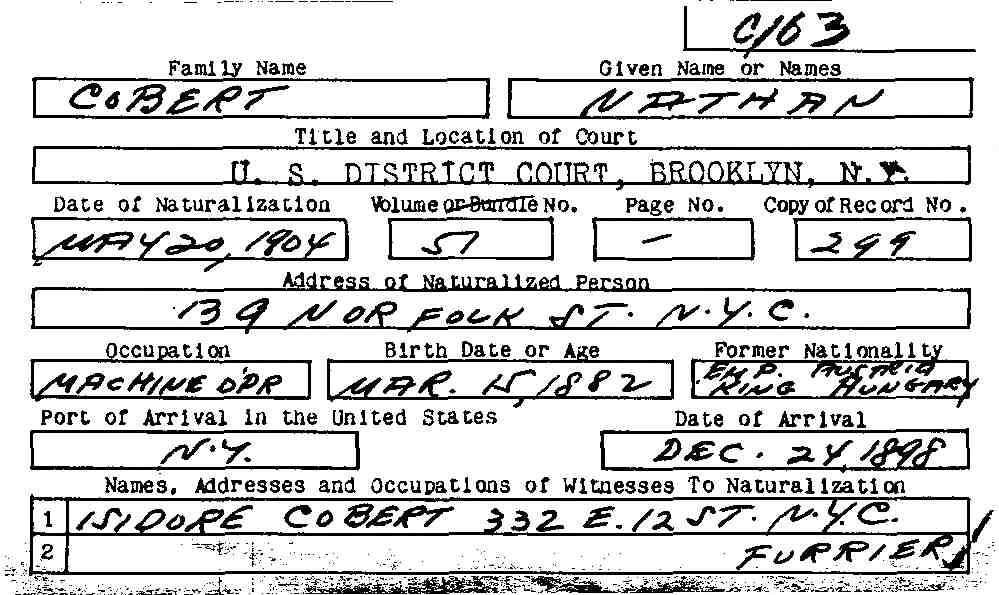 C163
Family Name Given Name or Names
COBERT NATHAN
Title and Location of Court
U. S. DISTRICT COURT, BROOKLYN, N.Y.
Date of Naturalization Volume or Bundle No. Page No. Copy of Record No.
MAY 20, 1904 51 — 299
Address of Naturalized Person
139 NORFOLK ST. N.Y.C.
Occupation Birth Date or Age Former Nationality
MACHINE O'PR MAR. 15, 1882 EMP. AUSTRIA
KING HUNGARY
Port of Arrival in the United States Date of Arrival
N.Y. DEC. 24, 1898
Names, Addresses and Occupations of Witnesses To Naturalization
1 ISIDORE COBERT 332 E. 12 ST. N.Y.C.
2 FURRIER